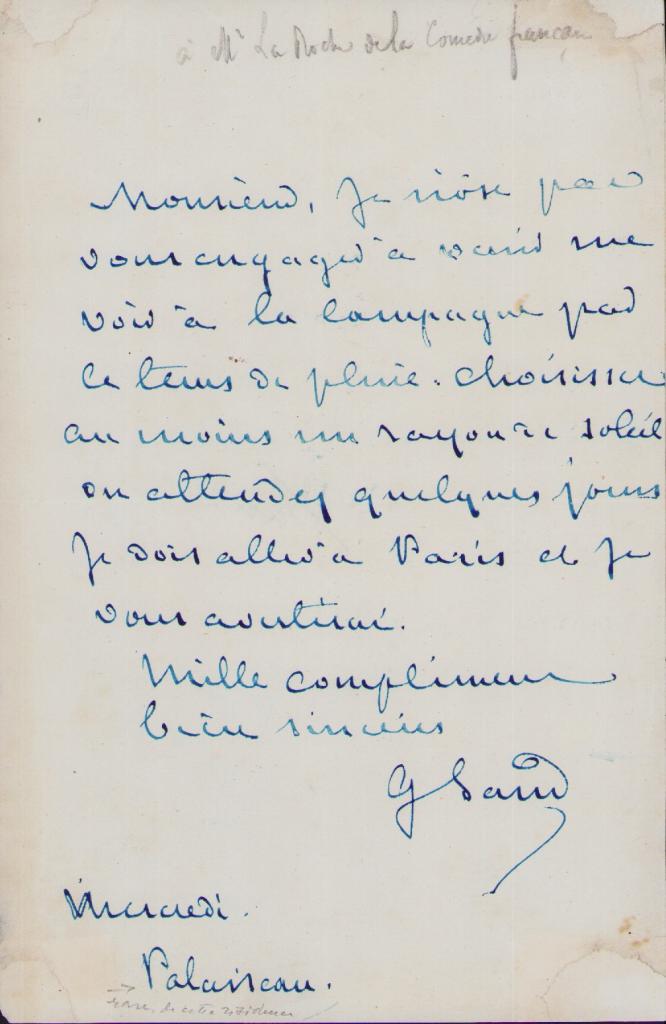 à Mr La Roche de la Comédie française
Monsieur, je n'ose pas
vous engager à venir me
voir à la campagne par
ce tems de pluie. choisissez
au moins un rayon de soleil
ou attendez quelques jours
je dois aller à Paris et je
vous avertirai.
Mille complimens
bien sincères
G Sand
Mercredi.
Palaiseau.
rare, de cette résidence